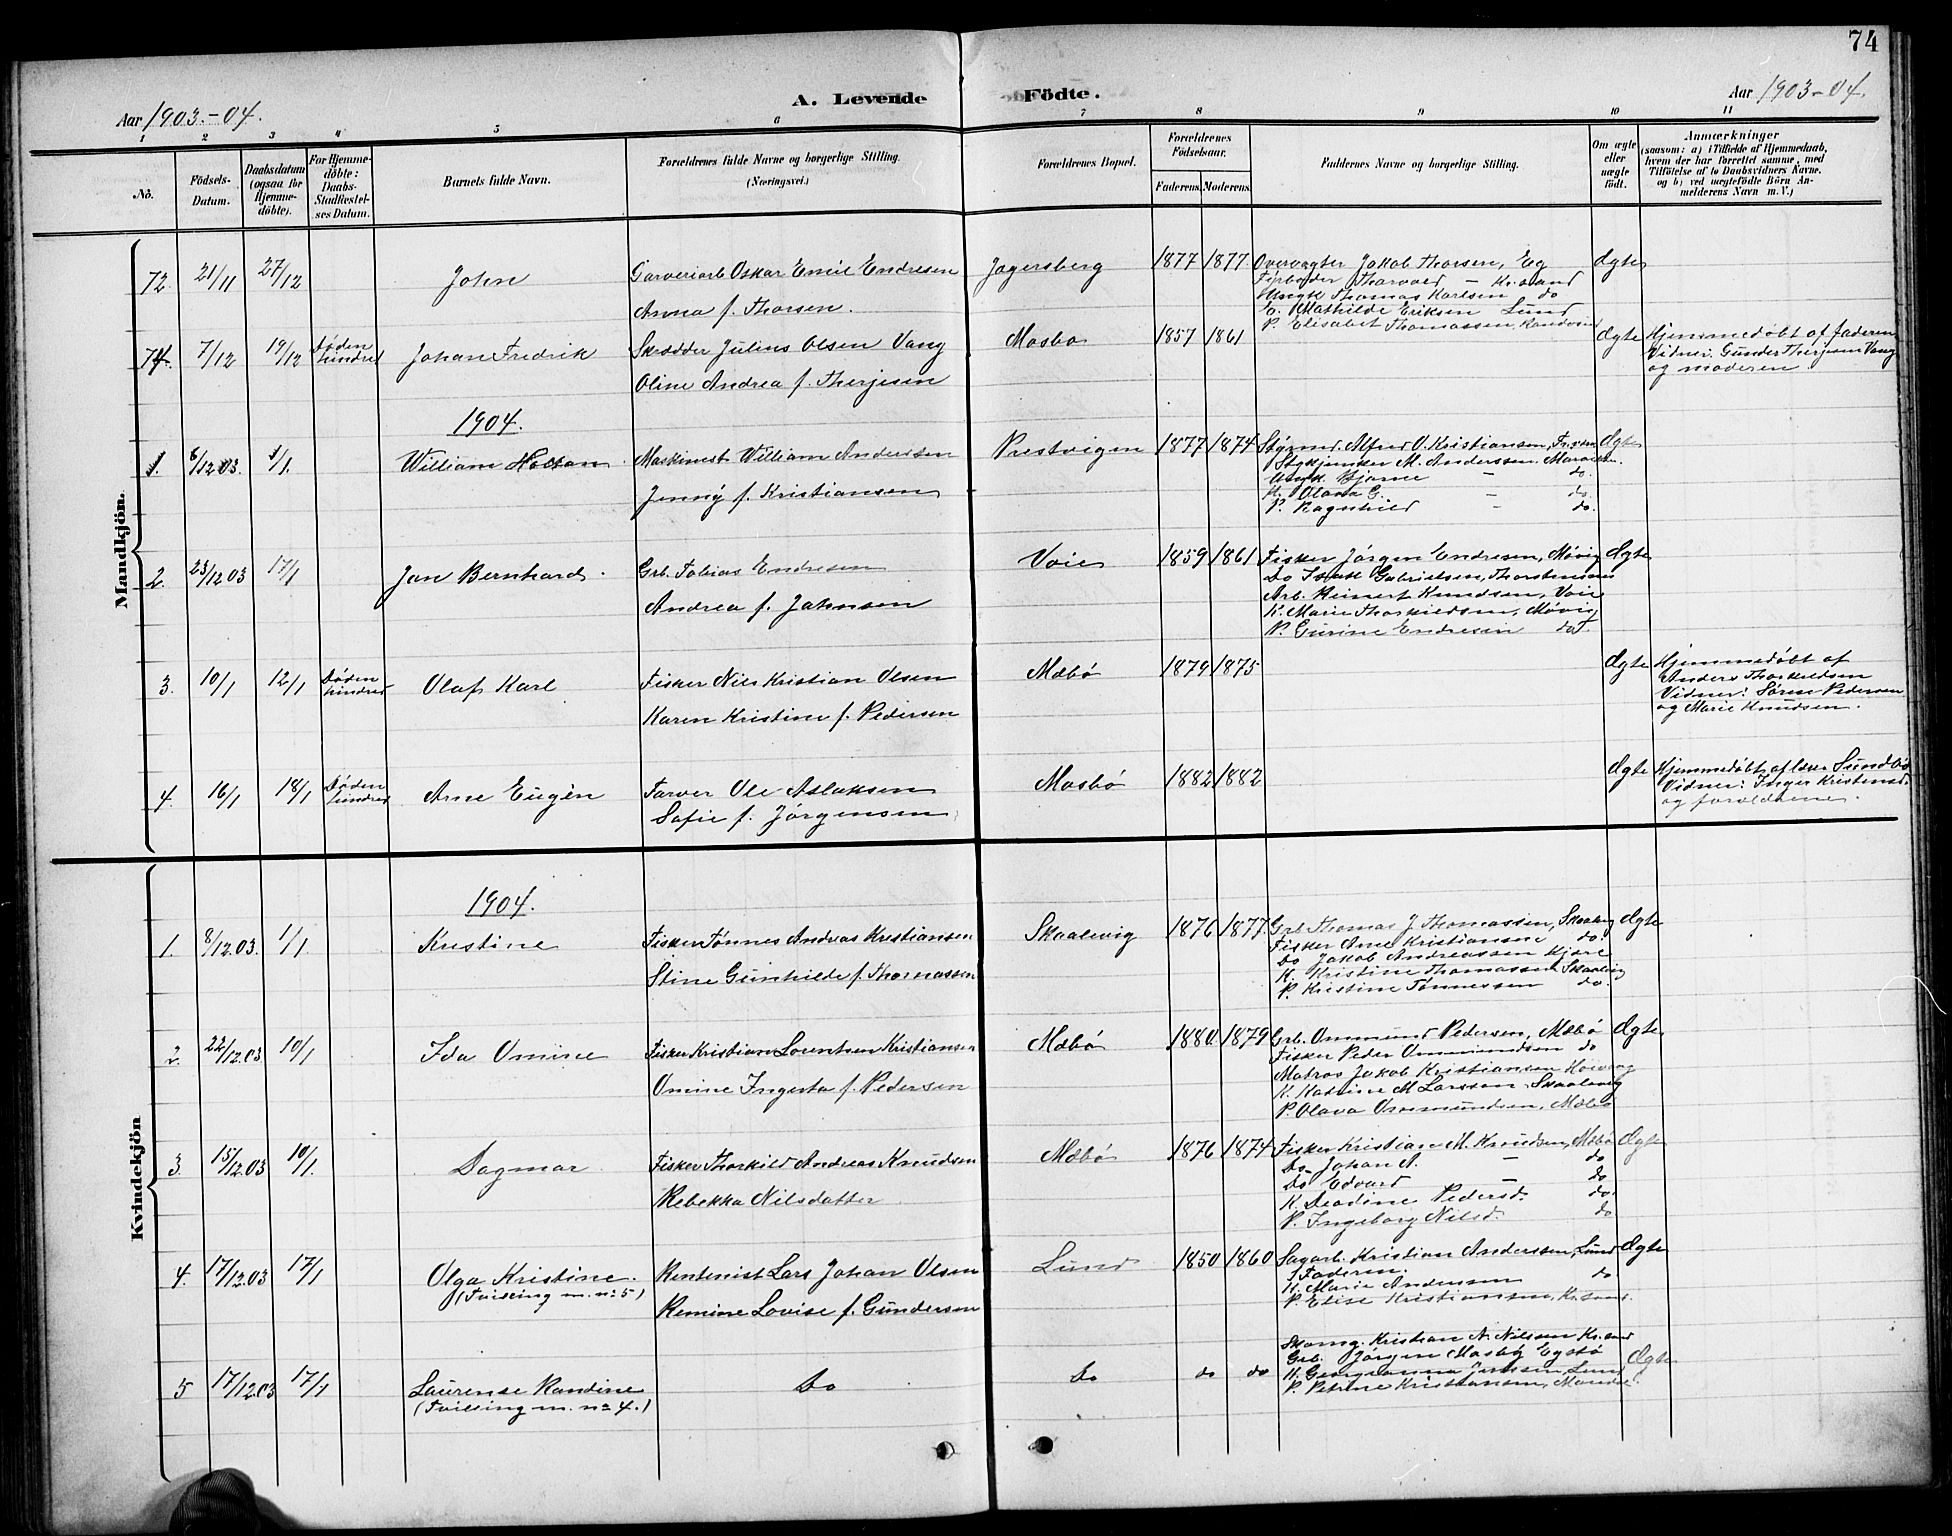 74
Aar 1903-04.
A. Levende Födte.
Aar 1903-04.
1 2 3 4 5 6 7 8 9 10 11
No.
Födsels-Datum.
Daabsdatum (ogsaa for Hjemmedöbte).
For Hjemmedöbte: Daabs-Stadfestelses Datum.
Barnets fulde Navn.
Forældrenes fulde Navne og borgerlige Stilling. (Næringsvei.)
Forældrenes Bopæl.
Forældrenes Födselsaar.
Faderens. Moderens.
Faddernes Navne og borgerlige Stilling.
Om ægte eller uægte födt.
Anmærkninger
(saasom: a) i Tilfælde af Hjemmedaab, hvem der har forrettet samme, med Tilföielse af to Daabsvidners Navne, og b) ved uægtefödte Börn Anmelderens Navn m. V.)
Mandkjön.
72. 21/11 27/12 John
Garveriarb Oskar Emil Endresen
Anna f. Thorsen.
Jagersberg 1877 1877.
Overvagter Jakob Thorsen, Eg
Thorvald - Kr.sand
Ungk Thomas Karlsen do
E. Mathilde Eriksen Lund
P. Elisabet Thomassen, Randvsund
Ægte
74. 7/12 19/12 Døden hindred Johan Fredrik
Skrædder Julius Olsen Vang
Oline Andrea f. Therjesen
Mosbø 1857 1861
Ægte
Hjemmedøbt af faderen
Vidner: Gunder Therjesen Vang
og moderen.
1904.
1. 6/12.03 1/1. William Holtan
Maskinist William Andersen
Jenny f. Kristiansen
Prestvigen 1877 1874
Styrmd. Alfred O. Kristiansen,
M. Anderssen
Ungk. Bjarne - do.
K. Olava G. - do.
P. Ragnhild - do.
Ægte
2. 23/12 03 17/1 Jan Bernhard.
Grb. Tobias Endresen
Andrea f. Jahnsen
Voie 1859 1861
Fisker Jørgen Endresen, Møvig
Do Isak Gabrielsen,
Arb. Reinert Knudsen, Voie
K. Marie Thorkildsen, Møvig
P. Gurine Endresen do.
Ægte
3. 10/1 12/1 Døden hindred Olaf Karl
Fisker Nils Kristian Olsen
Karen Kristine f. Pedersen
Mæbø 1879 1875
Ægte
Hjemmedøbt af
Anders Thorkildsen
Vidner: Sørine Pedersen
og Marie Knudsen.
4. 16/1 18/1 Døden hindred Arne Eugèn
Farver Ole Aslaksen
Sofie f. Jørgensen
Mosbø 1882 1882
Ægte
Hjemmedøbt af lærer Sundbø
Vidner: Inger Kristensd.
og forældrene.
Kvindekjön
1904.
1. 8/12.03. 1/1 Kristine
Fisker Tønnes Andreas Kristiansen
Stine Gunhilde f. Thomassen
Skaalevig 1876 1877.
Grb Thomas J Thomassen, Skaalevig
Fisker Arne Kristiansen do.
Do Jakob Andreassen Kjøre
K. Kristine Thomassen Skaalevig
P. Kristine Tønnessen do.
Ægte
2. 22/12.03 10/1 Ida Omine
Fisker Kristian Lorentsen Kristiansen
Omine Ingerta f. Pedersen
Mæbø 1880. 1879
Grb. Ommund Pedersen, Mæbø
Fisker Peder Ommundsen do
Matros Jakob Kristiansen
K. Katrine M Larssen Skaalevig
P. Olava Ommundsen, Mæbø
Ægte
3. 15/12.03 10/1. Dagmar
Fisker Thorkild Andreas Knudsen
Rebekka Nilsdatter
Mæbø 1876 1874
Fisker Kristian M. Knudsen, Mæbø
Do Johan A. - do
Do Edvard - do
K. Deodine Pedersd. do.
P. Ingeborg Nilsd. do
Ægte
4. 17/12.03 17/1 Olga Kristine.
(Tvilling m. no 5)
Rentenist Lars Johan Olsen
Remine Lovise f. Gundersen
Lund 1850 1860
Sagarb. Kristian Anderssen, Lund
Faderen.
K. Marie Andersen do.
P. Elise Kristiansen, Kr.sand.
Ægte
5 17/12.03 17/1 Laurense Randine
(Tvilling m. no 4.)
Do
Do do do
Skomg. Kristian N. Nilsen Kr.sand
Grb. Jørgen Mosbø Egsbø
K. Georgeanna Jensen, Lund
P. Petrine Kristiansen, Mandal
Ægte